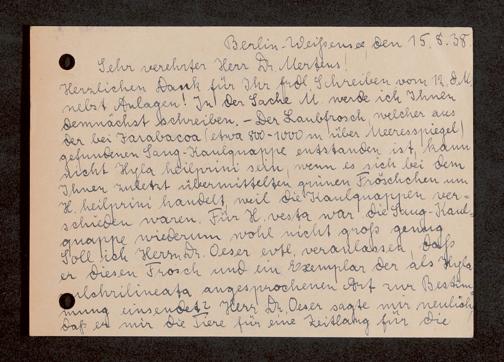 Berlin-Weißensee den 15.8.38
Sehr verehrter Herr Dr. Mertens!
Herzlichen Dank für Ihr frdl. Schreiben vom 12. d. M.
nebst Anlagen! In der Sache M. werde ich Ihnen
demnächst schreiben. – Der Laubfrosch, welcher aus
der bei Jarabacoa (etwa 800-1000 m über Meeresspiegel)
gefundenen Saug-Kaulquappe entstanden ist, kann
nicht Hyla heilprini sein, wenn es sich bei dem
Ihnen zuletzt übermittelten grünen Fröschchen um
H. heilprini handelt, weil die Kaulquappen ver-
schieden waren. Für H. vasta war die Saug-Kaul-
quappe wiederum wohl nicht groß genug
Soll ich Herrn Dr. Oeser evtl. veranlassen, daß
er diesen Frosch und ein Exemplar der als Hyla
pulchrilineata angesprochenen Art zur Bestim-
mung einsendet? Herr Dr. Oeser sagte mir neulich
daß er mir die Tiere für eine Zeitlang für die